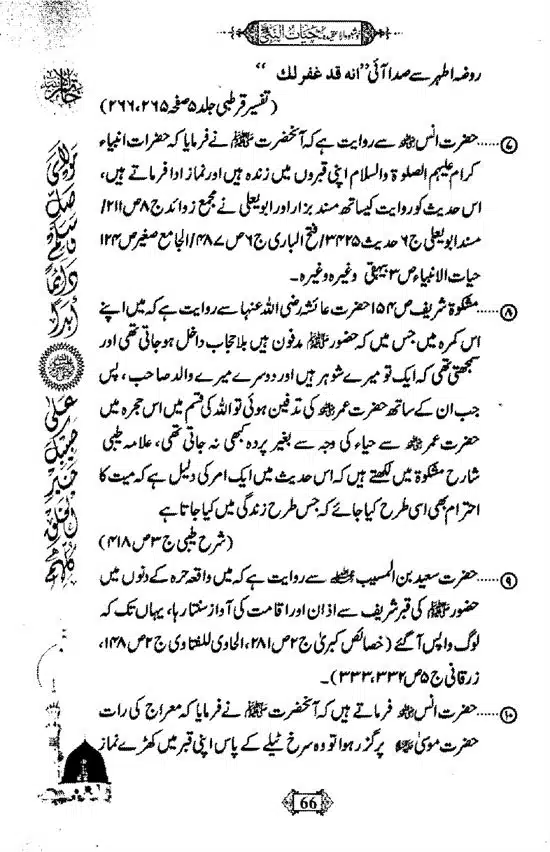 حیات النبی
روضہ اطہر سے صدا آئی ”انه قد غفر لك“
(تفسیر قرطبی جلد ۵ صفحہ ۲۶۵، ۲۶۶)
۷......حضرت انس رضی اللہ عنہ سے روایت ہے کہ آنحضرت ﷺ نے فرمایا کہ حضرات انبیاء
کرام علیہم الصلوۃ والسلام اپنی قبروں میں زندہ ہیں اور نماز ادا فرماتے ہیں،
اس حدیث کو روایت کیساتھ مسند بزار اور ابو یعلی نے مجمع زوائد ج ۸ ص ۲۱۱/
مسند ابو یعلی ج ۶ حدیث ۳۴۲۵/ فتح الباری ج ۶ ص ۴۸۷/ الجامع صغیر ص ۱۲۴
حیات الانبیاء ص ۳ بیہقی وغیرہ وغیرہ۔
۸......مشکوۃ شریف ص ۱۵۴ حضرت عائشہ رضی اللہ عنہا سے روایت ہے کہ میں اپنے
اس کمرہ میں جس میں کہ حضور ﷺ مدفون ہیں بلا حجاب داخل ہو جاتی تھی اور
سمجھتی تھی کہ ایک تو میرے شوہر ہیں اور دوسرے میرے والد صاحب، پس
جب ان کے ساتھ حضرت عمر رضی اللہ عنہ کی تدفین ہوئی تو اللہ کی قسم میں اس حجرہ میں
حضرت عمر رضی اللہ عنہ سے حیاء کی وجہ سے بغیر پردہ کبھی نہ جاتی تھی، علامہ طیبی
شارح مشکوۃ میں لکھتے ہیں کہ اس حدیث میں ایک امر کی دلیل ہے کہ میت کا
احترام بھی اسی طرح کیا جائے کہ جس طرح زندگی میں کیا جاتا ہے
(شرح طیبی ج ۳ ص ۴۱۸)
۹......حضرت سعید بن المسیب سے روایت ہے کہ میں واقعہ حرہ کے دنوں میں
حضور ﷺ کی قبر شریف سے اذان اور اقامت کی آواز سنتا رہا، یہاں تک کہ
لوگ واپس آ گئے (خصائص کبریٰ ج ۲ ص ۲۸۱، الحاوی للفتاوی ج ۲ ص ۱۴۸،
زرقانی ج ۵ ص ۳۳۲، ۳۳۳)۔
۱۰......حضرت انس رضی اللہ عنہ فرماتے ہیں کہ آنحضرت ﷺ نے فرمایا کہ معراج کی رات
حضرت موسیٰ پر گزر ہوا تو وہ سرخ ٹیلے کے پاس اپنی قبر میں کھڑے نماز
66
مولای صل وسلم دائما ابدا
علی حبیبک خیر الخلق کلهم